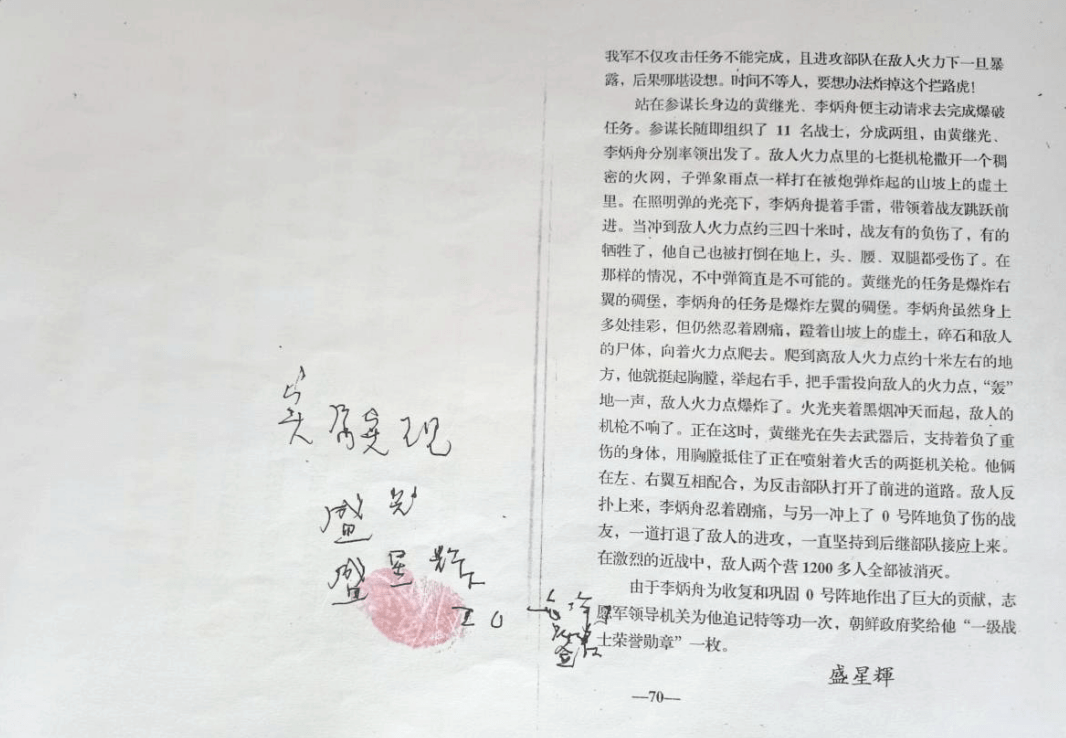 我军不仅攻击任务不能完成，且进攻部队在敌人火力下一旦暴
露，后果哪堪设想。时间不等人，要想办法炸掉这个拦路虎！
站在参谋长身边的黄继光、李炳舟便主动请求去完成爆破
任务。参谋长随即组织了 11 名战士，分成两组，由黄继光、
李炳舟分别率领出发了。敌人火力点里的七挺机枪撒开一个稠
密的火网，子弹象雨点一样打在被炮弹炸起的山坡上的虚土
里。在照明弹的光亮下，李炳舟提着手雷，带领着战友跳跃前
进。当冲到敌人火力点约三四十米时，战友有的负伤了，有的
牺牲了，他自己也被打倒在地上，头、腰、双腿都受伤了。在
那样的情况，不中弹简直是不可能的。黄继光的任务是爆炸右
翼的碉堡，李炳舟的任务是爆炸左翼的碉堡。李炳舟虽然身上
多处挂彩，但仍然忍着剧痛，蹬着山坡上的虚土，碎石和敌人
的尸体，向着火力点爬去。爬到离敌人火力点约十米左右的地
方，他就挺起胸膛，举起右手，把手雷投向敌人的火力点，“轰”
地一声，敌人火力点爆炸了。火光夹着黑烟冲天而起，敌人的
机枪不响了。正在这时，黄继光在失去武器后，支持着负了重
伤的身体，用胸膛抵住了正在喷射着火舌的两挺机关枪。他俩
在左、右翼互相配合，为反击部队打开了前进的道路。敌人反
扑上来，李炳舟忍着剧痛，与另一冲上了 0 号阵地负了伤的战
友，一道打退了敌人的进攻，一直坚持到后继部队接应上来。
在激烈的近战中，敌人两个营 1200 多人全部被消灭。
由于李炳舟为收复和巩固 0 号阵地作出了巨大的贡献，志
愿军领导机关为他追记特等功一次，朝鲜政府奖给他“一级战
士荣誉勋章”一枚。
盛星輝
—70—
盛
盛星辉